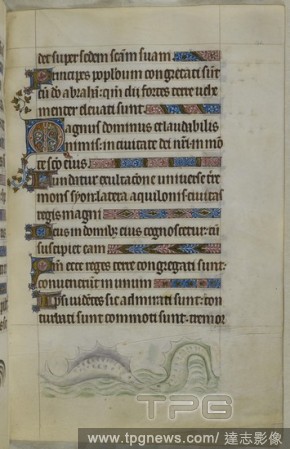 det super sedem scam suam
Principes popl'oum congregati sūt
cū dō abrahā: qm̄ dii fortes terre vehe
menter elevati sunt
Magnus dominus et laudabilis
nimis: in civitate dei nr̄i in mō
te scō eius
Fundatur exultacōne universe tr̄e
mons syon latera aquilonis civitas
regis magni
Deus in domib; eius cognoscetur: cū
suscipiet eam
Qm̄ ecce reges terre congregati sunt:
convenerunt in unum
Ipsi videtes sic admirati sunt: con
turbati sunt commoti sunt: tremor
TPG
www.tpgnews.com/達志影像